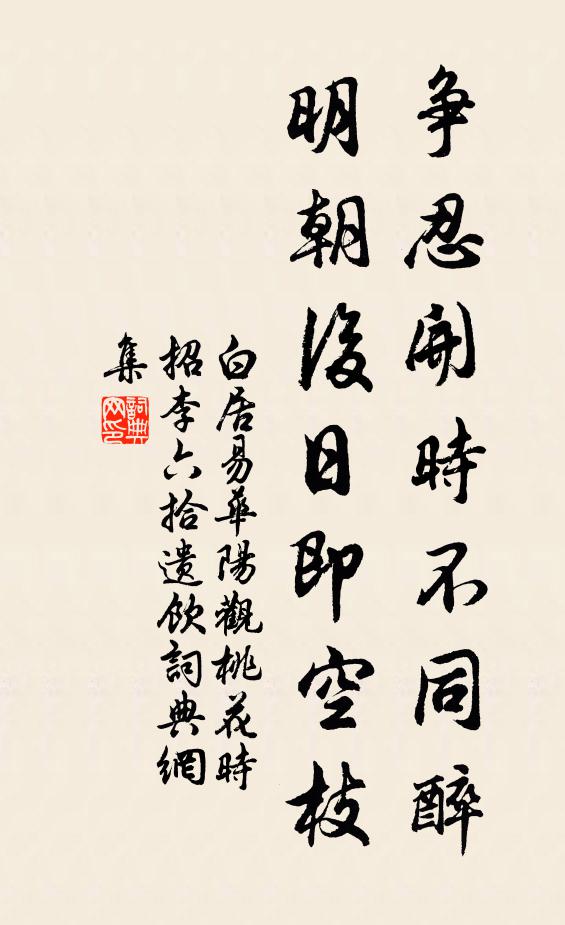 争忍開時不同醉
明朝後日即空枝
白居易華陽觀桃花時
招李六拾遺飲詞典網
集
詞典
网印